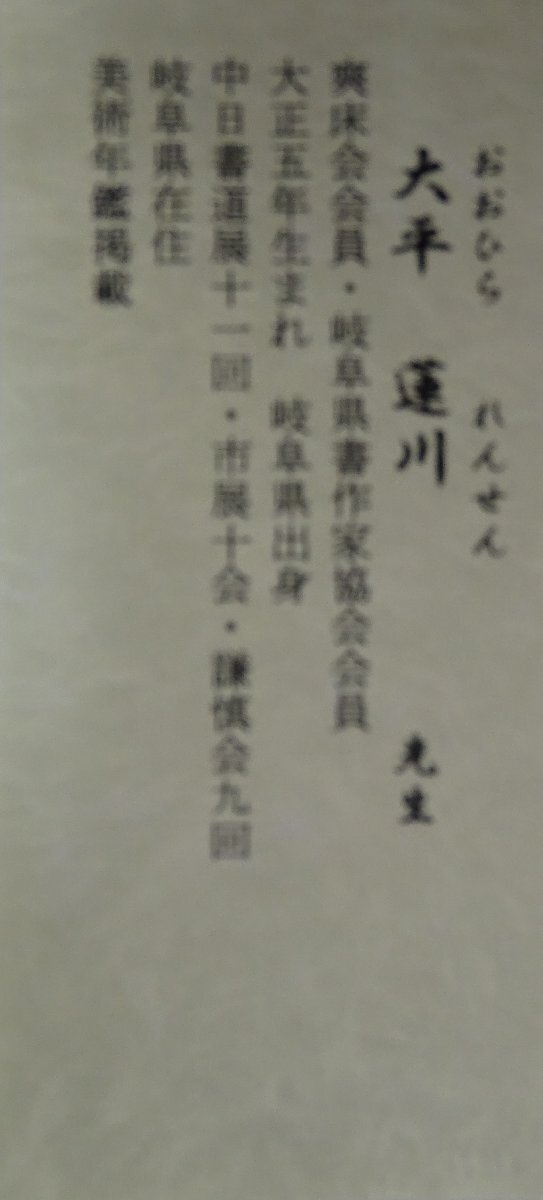 おおひら れんせん
大平 蓮川 先生
爽床会会員・岐阜県書作家協会会員
大正五年生まれ 岐阜県出身
中日書道展十一回・市展十会・謙慎会九回
岐阜県在住
美術年鑑掲載